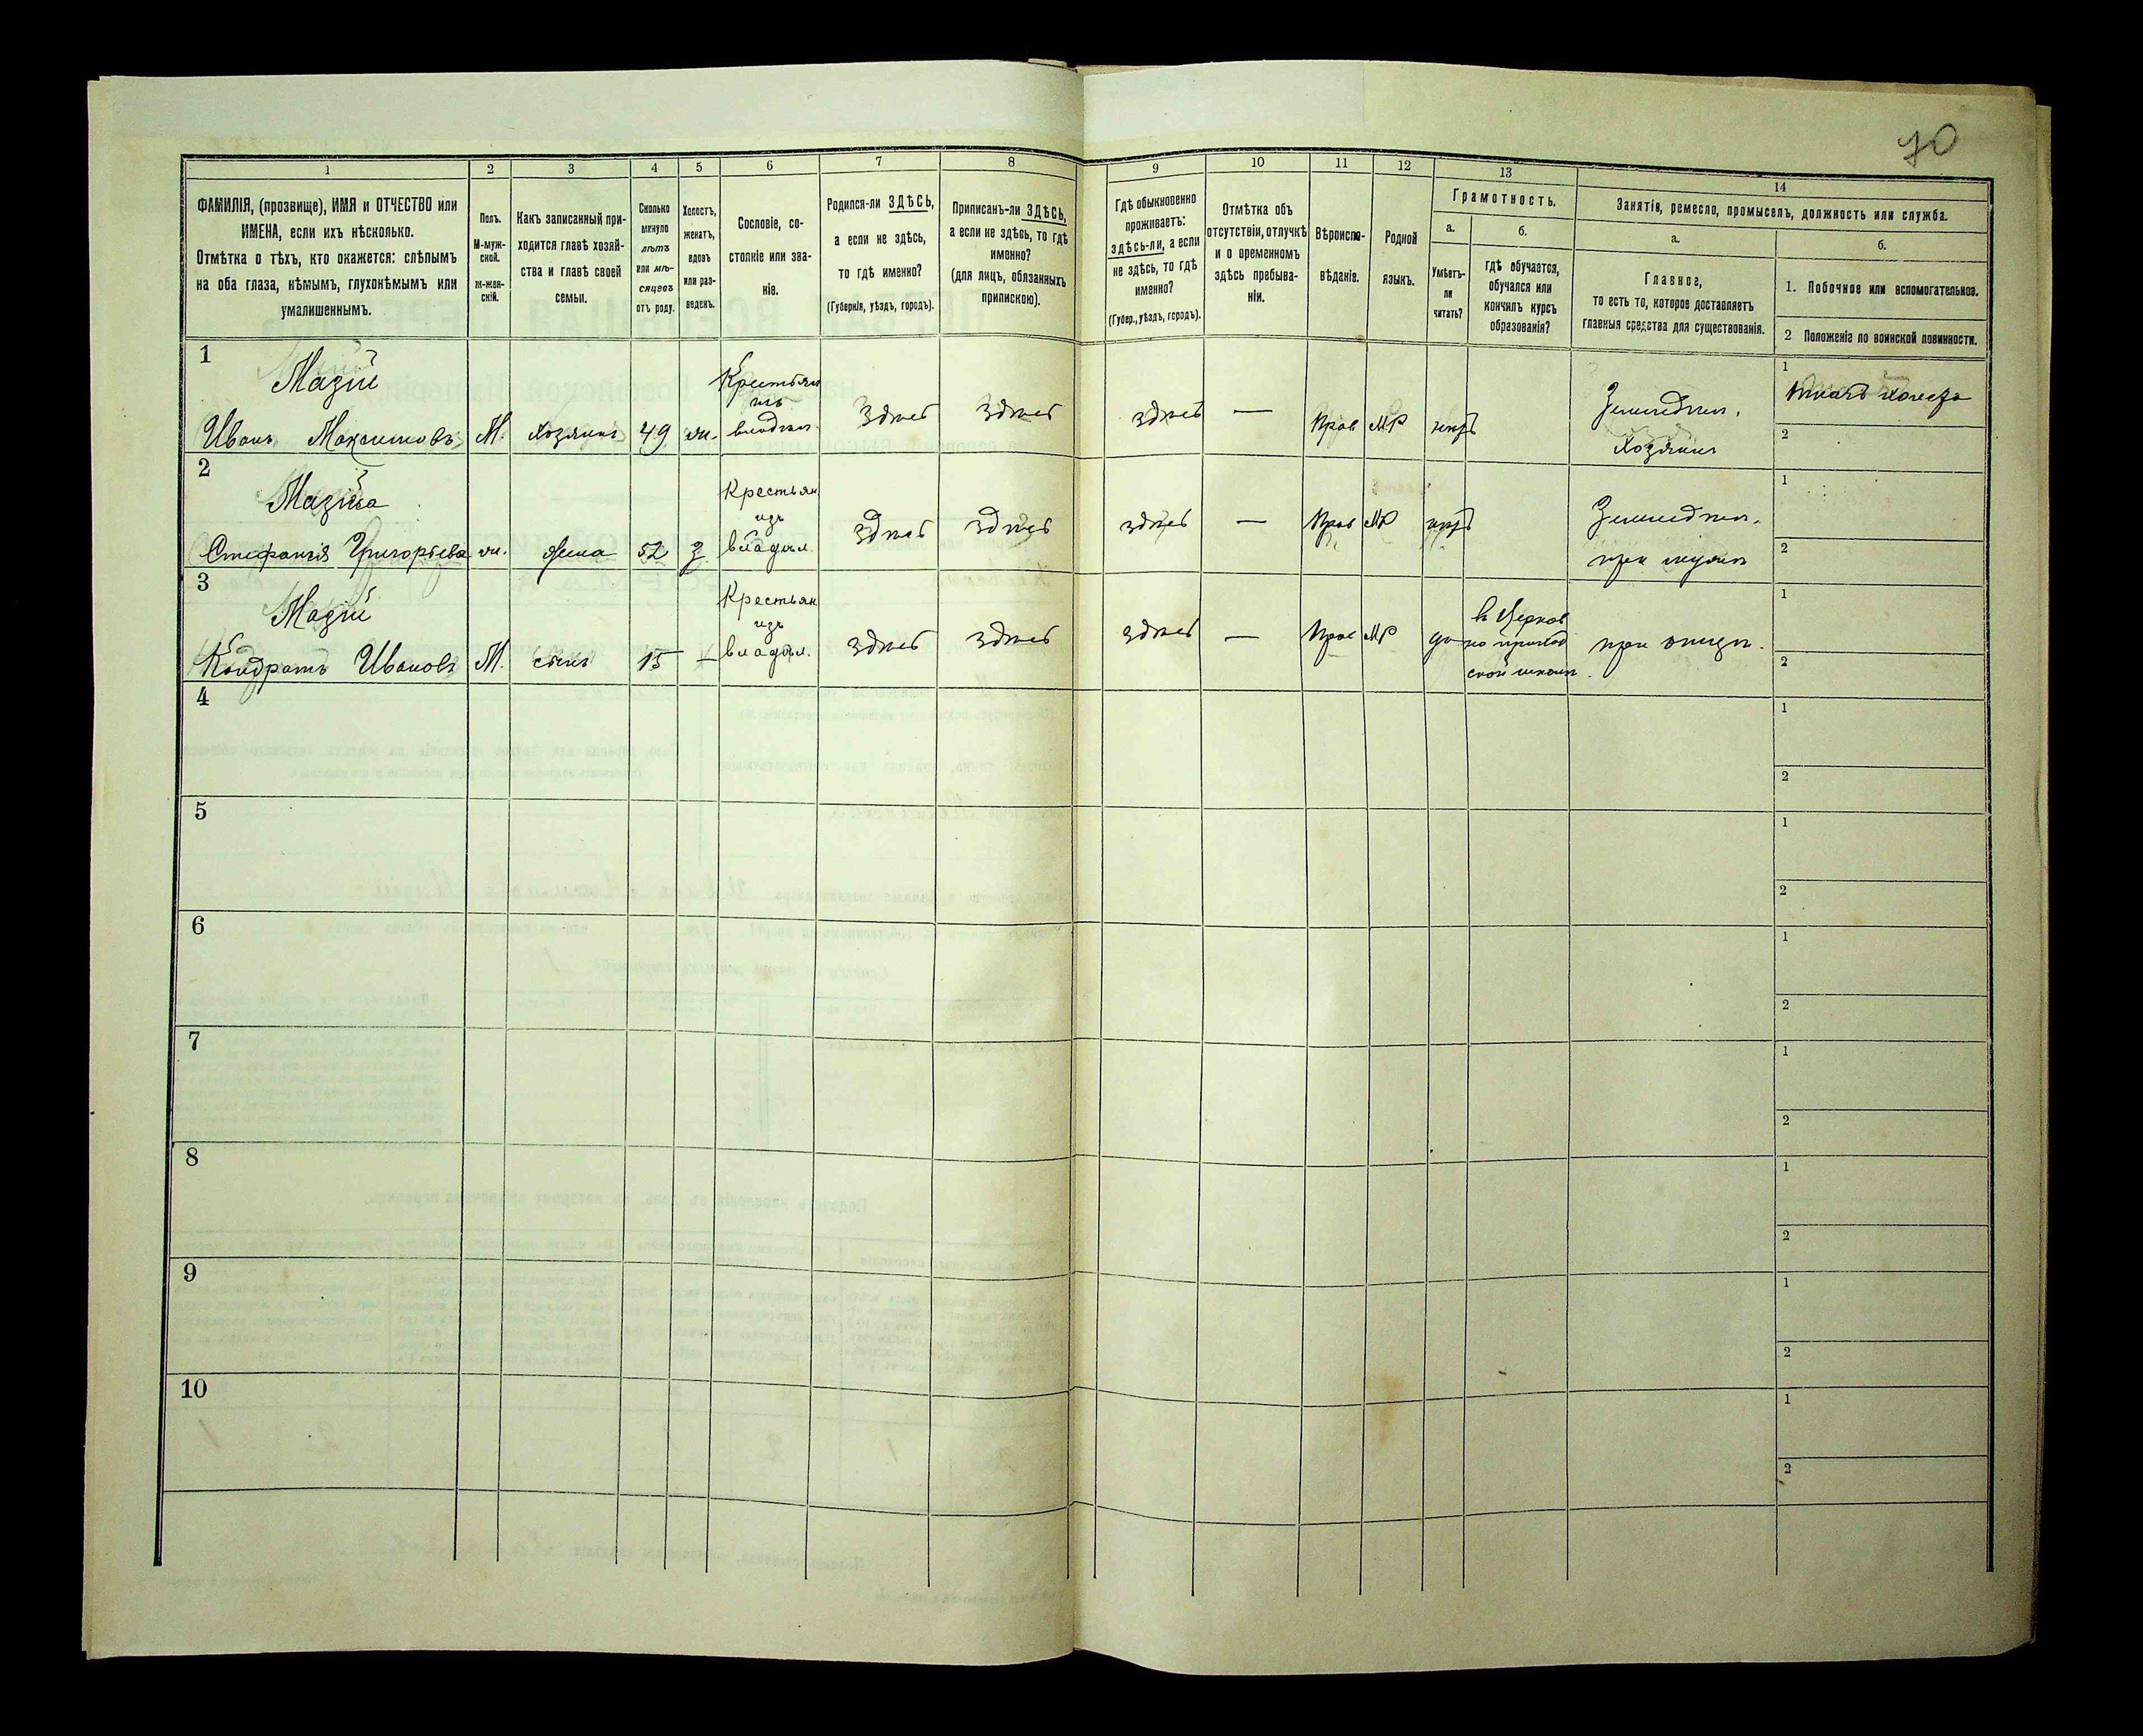 70
1 2 3 4 5 6 7 8 9 10 11 12 13 14
ФАМИЛІЯ, (прозвище), ИМЯ и ОТЧЕСТВО или
ИМЕНА, если ихъ нѣсколько.
Отмѣтка о тѣхъ, кто окажется: слѣпымъ
на оба глаза, нѣмымъ, глухонѣмымъ или
умалишеннымъ.
Полъ.
М-муж-
ской.
Ж-жен-
скій.
Какъ записанный при-
ходится главѣ хозяй-
ства и главѣ своей
семьи.
Сколько
минуло
лѣтъ
или мѣ-
сяцевъ
отъ роду.
Холостъ,
женатъ,
вдовъ
или раз-
веденъ.
Сословіе, со-
стояніе или зва-
ніе.
Родился-ли ЗДѢСЬ,
а если не здѣсь,
то гдѣ именно?
(Губернія, уѣздъ, городъ).
Приписанъ-ли ЗДѢСЬ,
а если не здѣсь, то гдѣ
именно?
(для лицъ, обязанныхъ
припискою).
Гдѣ обыкновенно
проживаетъ:
здѣсь-ли, а если
не здѣсь, то гдѣ
именно?
(Губер., уѣздъ, городъ).
Отмѣтка объ
отсутствіи, отлучкѣ
и о временномъ
здѣсь пребыва-
ніи.
Вѣроиспо-
вѣданіе.
Родной
языкъ.
Грамотность.
а.
Умѣетъ-
ли
читать?
б.
гдѣ обучается,
обучался или
кончилъ курсъ
образованія?
Занятія, ремесло, промыселъ, должность или служба.
а.
Главное,
то есть то, которое доставляетъ
главныя средства для существованія.
б.
1. Побочное или вспомогательное.
2 Положеніе по воинской повинности.
1
Мазій
Иванъ Максимовъ
М.
хозяинъ
49
ж.
Крестьян
изъ
владѣл.
здѣсь
здѣсь
здѣсь
—
Прав
МР
нѣтъ
Земледѣл.
хозяинъ
1
2
2
Мазіева
Стефанія Григорьева
ж.
жена
52
З
Крестьян
изъ
владѣл.
здѣсь
здѣсь
здѣсь
—
Прав
МР
нѣтъ
Земледѣл.
при мужѣ
1
2
3
Мазій
Кондратъ Ивановъ
М.
сынъ
15
—
Крестьян
изъ
владѣл.
здѣсь
здѣсь
здѣсь
—
Прав
МР
да
в Церков
но приход
ской школѣ
при отцѣ.
1
2
4
1
2
5
1
2
6
1
2
7
1
2
8
1
2
9
1
2
10
1
2